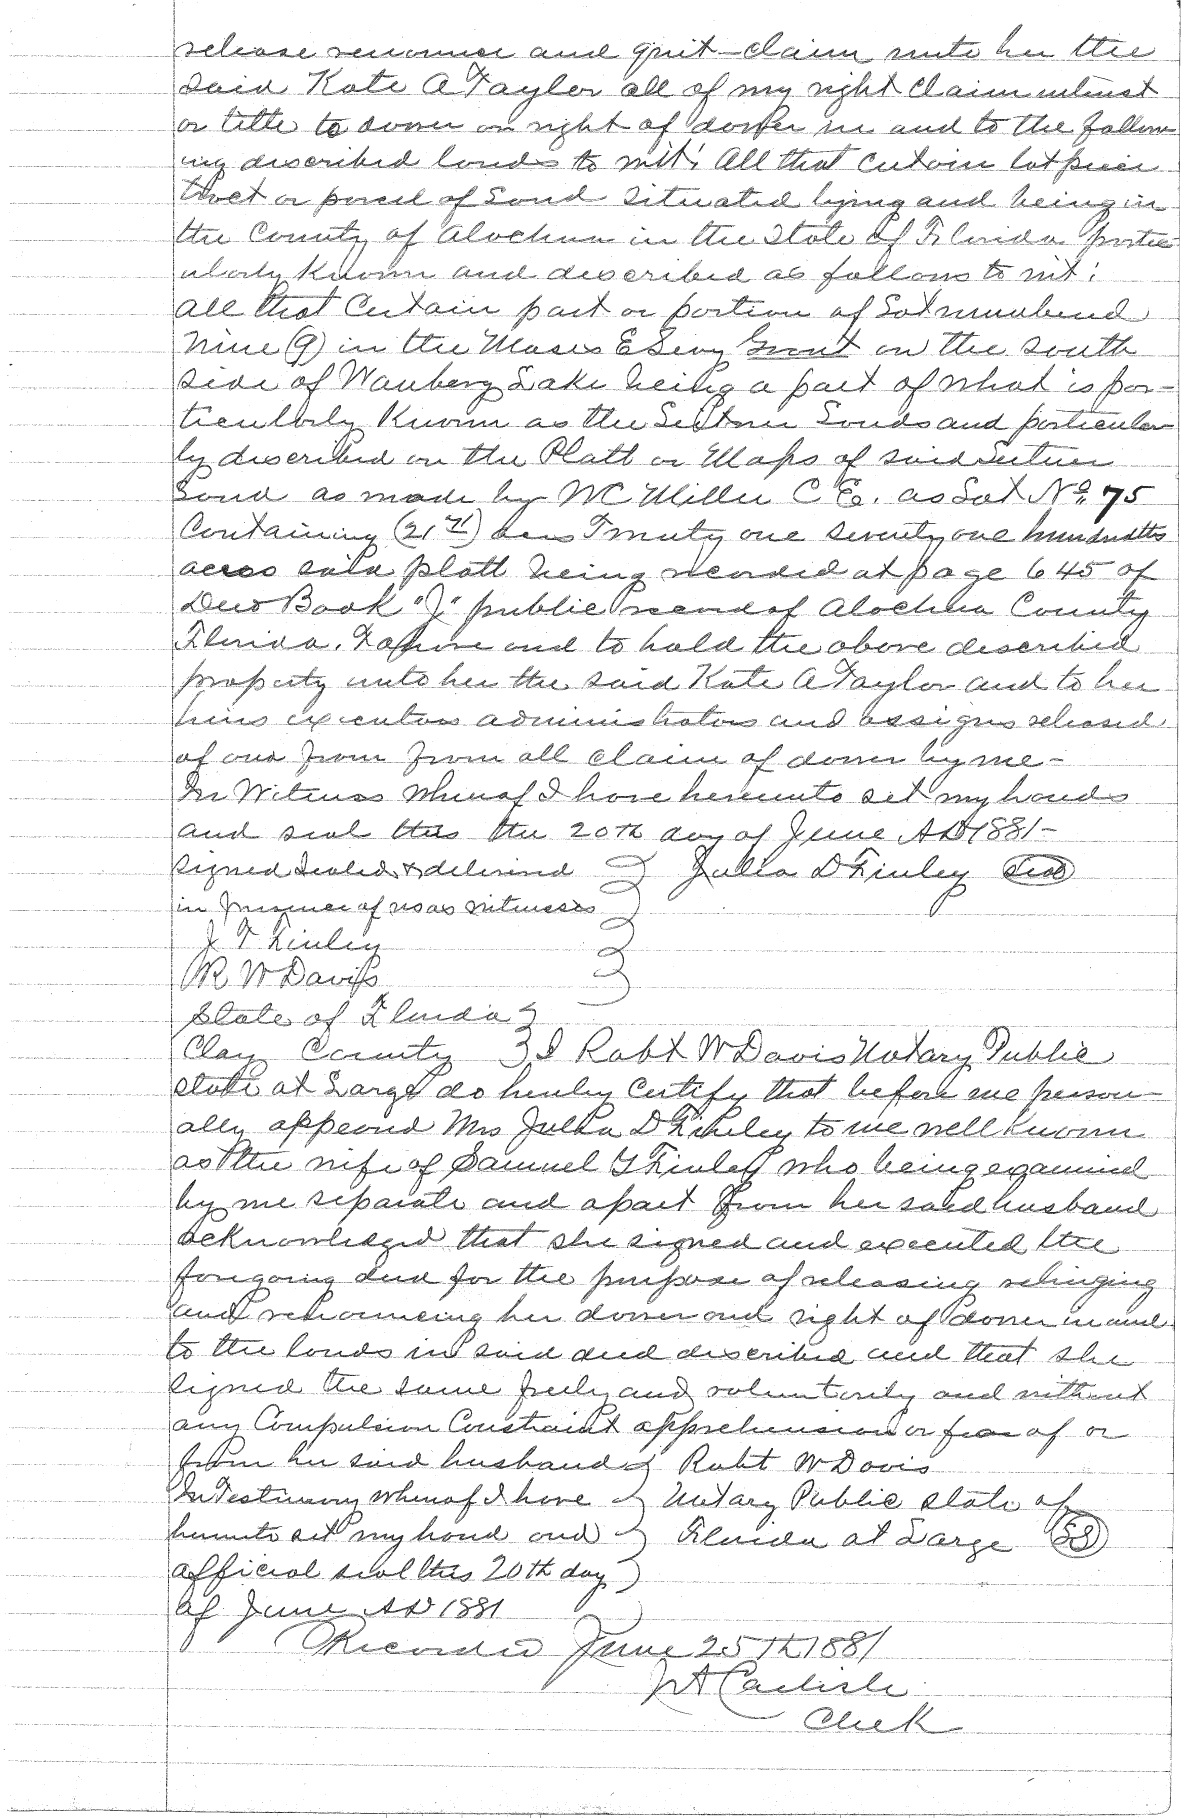 release renounce and quit-claim unto her the
said Kate A Taylor all of my right claim interest
or title to dower or right of dower in and to the follow
ing described lands to wit: All that certain lot piece
tract or parcel of Land situated lying and being in
the County of Alachua in the State of Florida partic
ularly known and described as follows to wit:
all that certain part or portion of Lot numbered
Nine (9) in the Moses E Levy Grant on the south
side of Wauberg Lake being a part of what is par-
ticularly known as the Lands and particular
ly described on the Platt or Maps of said
Land as made by W C Miller C E. as Lot No. 75
Containing (21 71) acres Twenty one seventy one hundredths
acres said platt being recorded at page 645 of
Deed Book "J" public record of Alachua County
Florida. To have and to hold the above described
property unto her the said Kate A Taylor and to her
heirs executors administrators and assigns released
of and from from all claim of dower by me-
In Witness Whereof I have hereunto set my hands
and seal this the 20th day of June AD 1881-
signed sealed & delivered } Julia D Finley Seal
in presence of us as witnesses
J F Finley
R W Davis
State of Florida }
Clay County } I Robt W Davis Notary Public
state at Large do hereby certify that before me person-
ally appeared Mrs Julia D Finley to me well known
as the wife of Samuel Y Finley who being examined
by me separate and apart from her said husband
acknowledged that she signed and executed the
foregoing deed for the purpose of releasing relinging
and renouncing her dower and right of dower in and
to the lands in said deed described and that she
signed the same freely and voluntarily and without
any Compulsion Constraint apprehension or fear of or
from her said husband } Robt W Davis
In Testimony whereof I have } Notary Public state of
hereunto set my hand and } Florida at Large LS
official seal this 20th day }
of June AD 1881
Recorded June 25th 1881
J A Carlisle
Clerk